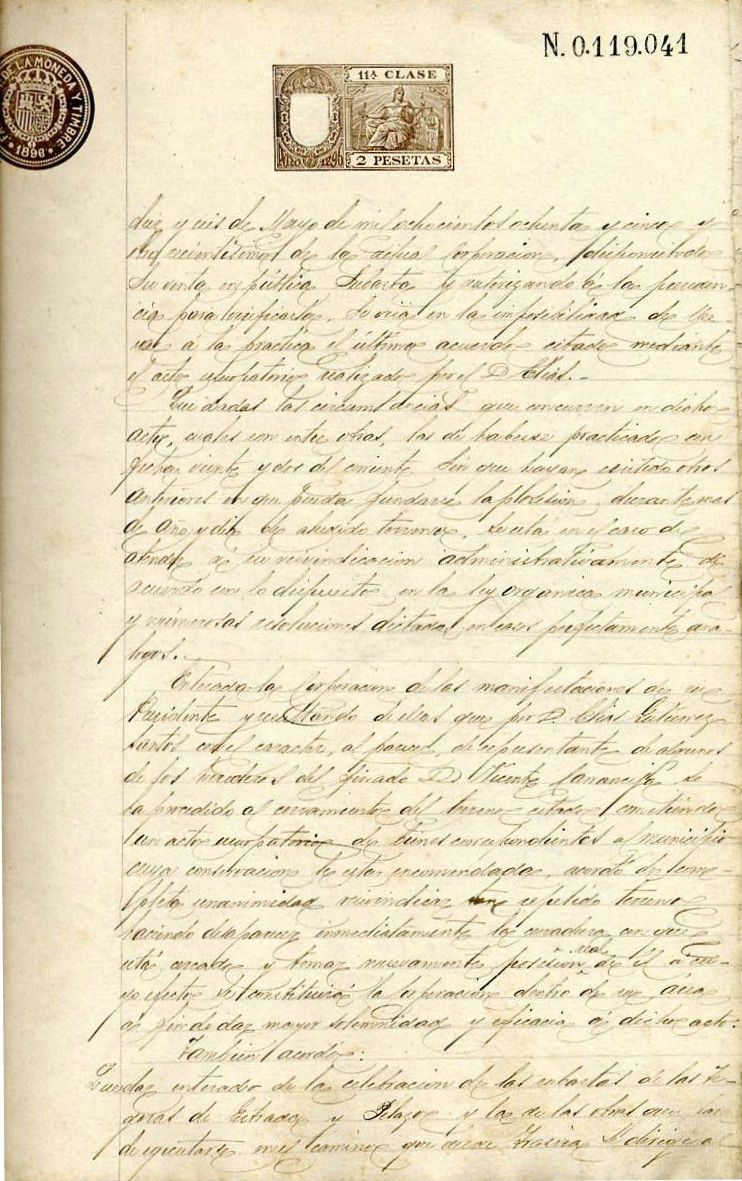 N. 0.119.041
DE LA MONEDA Y TIMBRE
1896
11ª CLASE
AÑO 1896
2 PESETAS
diez y seis de Mayo de mil ochocientos ochenta y cinco y
de la actual Corporacion, disponiendo
su venta en pública subasta y autorizando á la presiden-
cia para verificarla, se veia en la imposibilidad de lle
var á la practica el último acuerdo citado mediante
el acto usurpatorio realizado por el D. Elias.-
Que dadas las circunstancias que concurren en dicho
acto, cuales son entre otras, las de haberse practicado con
fecha veinte y dos del corriente sin que hayan existido otros
anteriores en que pueda fundarse la posesion durante mas
de año y dia de aludido terreno, se está en el caso de
atender á su reivindicacion administrativamente de
acuerdo con lo dispuesto en la ley organica municipal
y numerosas resoluciones dictadas en casos perfectamente aná-
logos.-
Enterada la Corporacion de las manifestaciones de su
Presidente y resultando de ellas que por D. Elias Gutierrez
Santos con el caracter, al parecer, de representante de algunos
de los herederos del finado D. Vicente Carranceja se
ha procedido al cerramiento del terreno citado cometiendo
un acto usurpatorio de bienes correspondientes al municipio
cuya conservacion le esta encomendada, acordó por com-
pleta unanimidad reivindicar repetido terreno
haciendo desaparecer inmediatamente la cerradura con que
está cercado y tomar nuevamente posesion real de él á cu-
yo efecto se constituirá la corporacion dentro de su área
á fin de dar mayor solemnidad y eficacia á dicho acto.
Tambien acordó:
Quedar enterado de la celebracion de las subastas de las
de Estrada y Pelayo y la de las obras que se han
de ejecutar en el camino que desde se dirige al